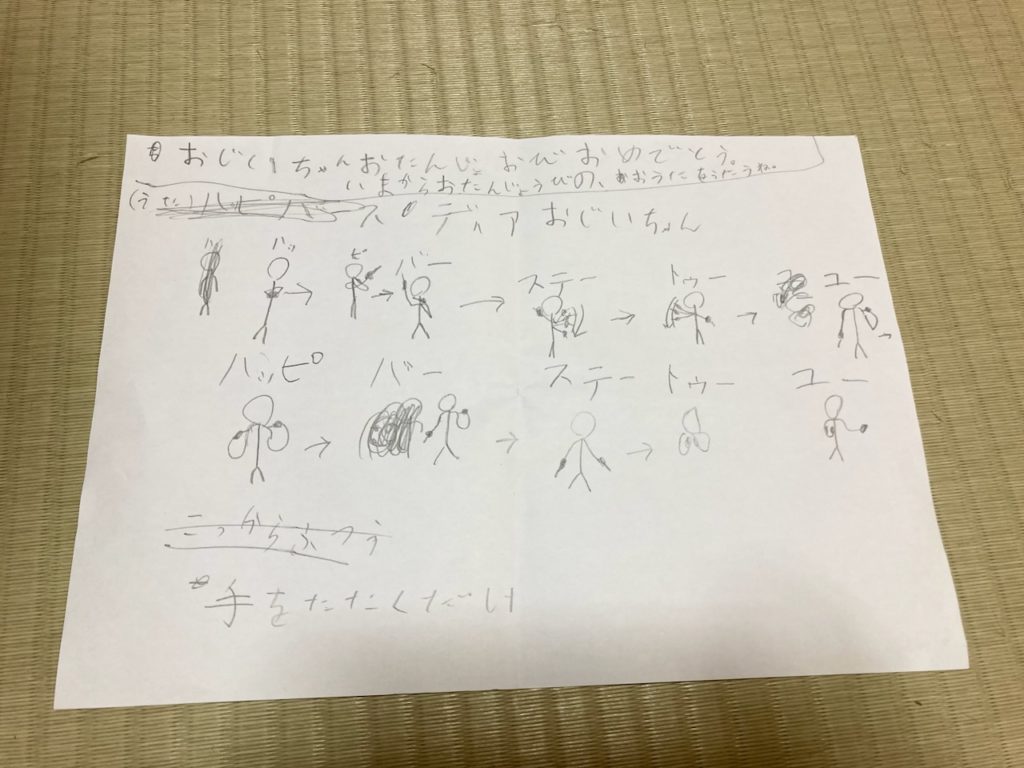 おじいちゃんおたんじょおびおめでとう。
いまからおたんじょうびの、おうたをうたうね。
(うた)ハッピバースデディアおじいちゃん
ハッ ピ バー ステー トゥー ユー
ハッピ バー ステー トゥー ユー
こっからふつう
手をたたくだけ